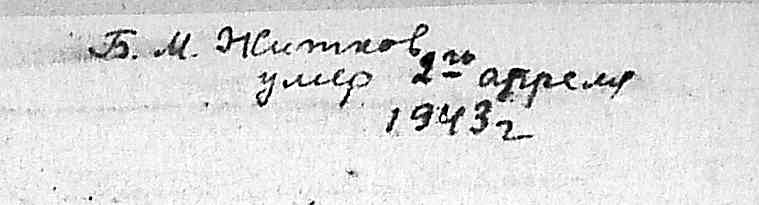 Б. М. Житков
умер 2го апреля
1943 г